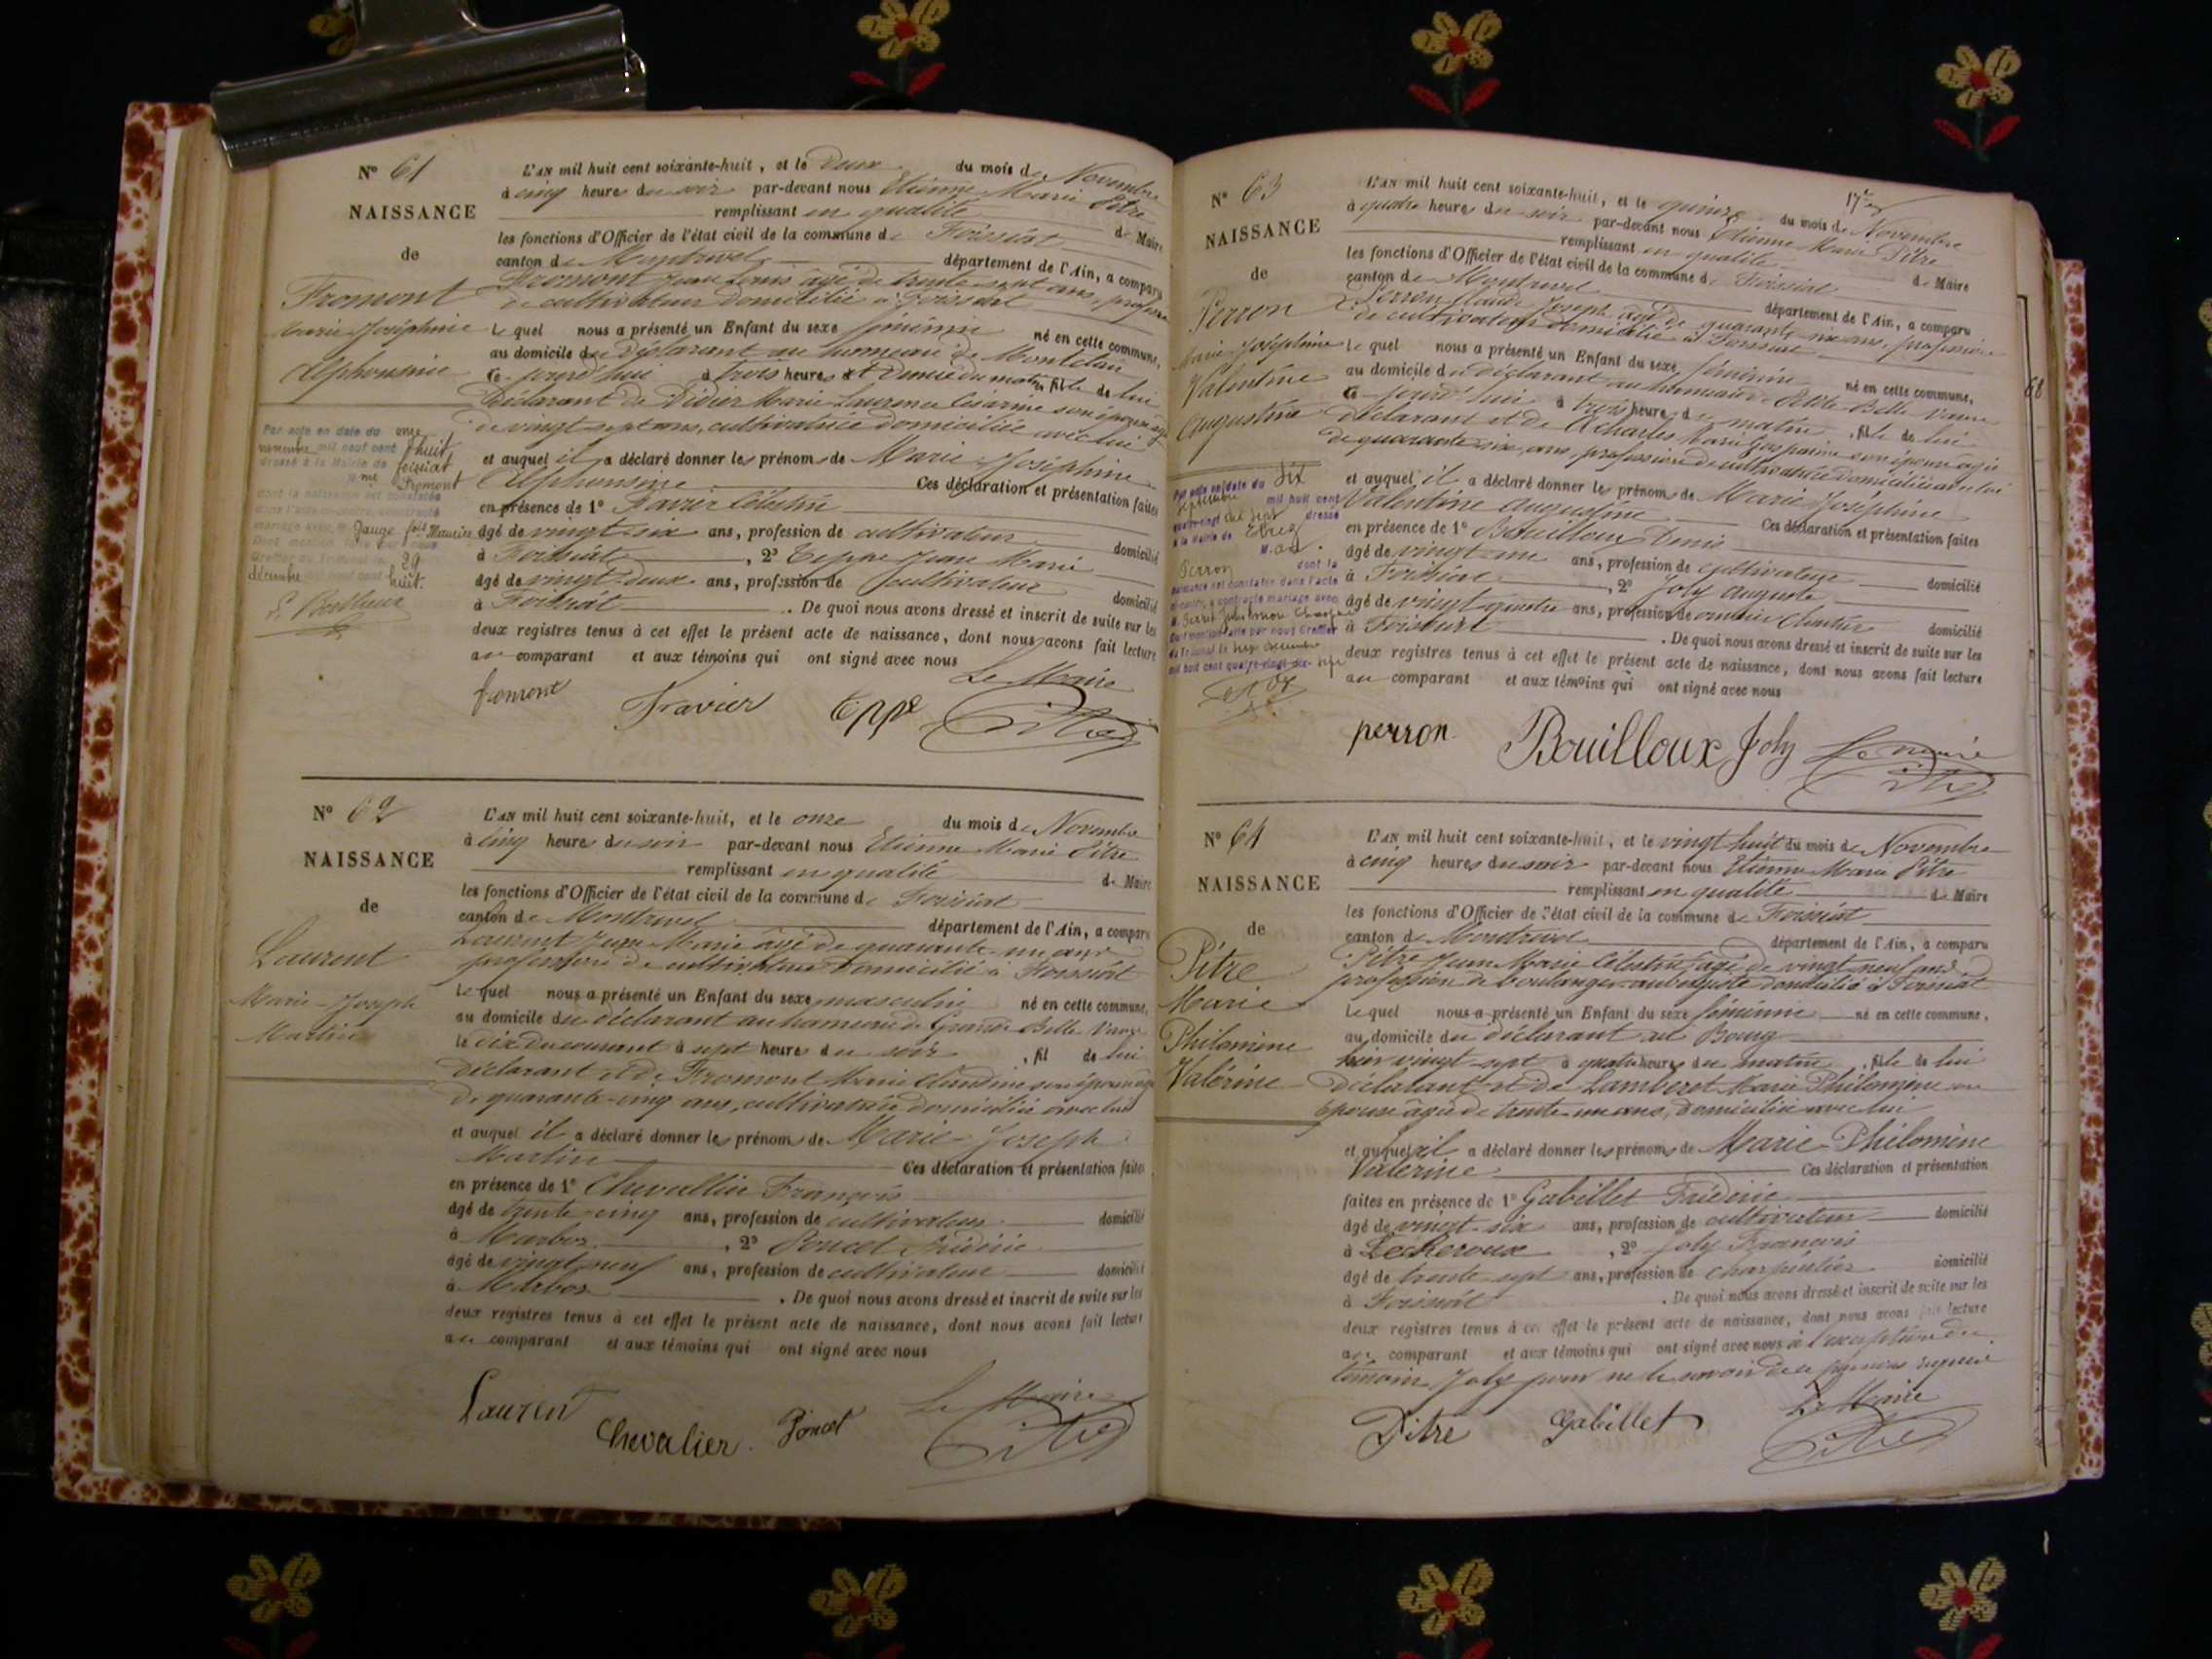 N° 61
NAISSANCE
de
Fromont
Marie-Joséphine
Alphonsine
Par acte en date du onze
novembre mil neuf cent huit
dressé à la Mairie de foissiat
Fromont
dont la naissance est constatée
mariage avec
décembre huit.
L'AN mil huit cent soixante-huit, et le Deux du mois de Novembre
à cinq heures du soir par-devant nous Etienne Marie Pitre
remplissant en qualité de Maire
les fonctions d'Officier de l'état civil de la commune de Foissiat
canton de Montrevel département de l'Ain, a comparu
Fromont Jean Louis âgé de trente sept ans, profession
de cultivateur domicilié à Foissiat
Lequel nous a présenté un Enfant du sexe féminin né en cette commune,
au domicile du Déclarant au hameau de
ce jourd'hui à trois heures et Demie du matin fille de lui
Déclarant de Didier Marie Laurence son épouse âgée
de vingt sept ans, cultivatrice domiciliée avec lui
et auquel il a déclaré donner les prénoms de Marie-Joséphine
Alphonsine Ces déclaration et présentation faites
en présence de 1°
âgé de vingt-six ans, profession de cultivateur domicilié
à Foissiat, 2° Jean Marie
âgé de vingt-deux ans, profession de cultivateur domicilié
à Foissiat. De quoi nous avons dressé et inscrit de suite sur les
deux registres tenus à cet effet le présent acte de naissance, dont nous avons fait lecture
au comparant et aux témoins qui ont signé avec nous
Le Maire
fromont
N° 62
NAISSANCE
de
Laurent
Marie-Joseph
Martin
L'AN mil huit cent soixante-huit, et le onze du mois de Novembre
à cinq heures du soir par-devant nous Etienne Marie Pitre
remplissant en qualité de Maire
les fonctions d'Officier de l'état civil de la commune de Foissiat
canton de Montrevel département de l'Ain, a comparu
Laurent Jean Marie âgé de quarante-un ans
profession de cultivateur domicilié à Foissiat
Lequel nous a présenté un Enfant du sexe masculin né en cette commune,
au domicile du déclarant au hameau de Grande Belle Vavre
le dix du courant à sept heures du soir, fil de lui
déclarant et de Fromont Marie Claudine son épouse âgée
de quarante-cinq ans, cultivatrice domiciliée avec lui
et auquel il a déclaré donner les prénoms de Marie-Joseph
Martin Ces déclaration et présentation faites
en présence de 1° Chevallier François
âgé de trente-cinq ans, profession de cultivateur domicilié
à Marboz, 2° Poncet Frédéric
âgé de vingt neuf ans, profession de cultivateur domicilié
à Marboz. De quoi nous avons dressé et inscrit de suite sur les
deux registres tenus à cet effet le présent acte de naissance, dont nous avons fait lecture
au comparant et aux témoins qui ont signé avec nous
Le Maire
Laurent
Chevalier Poncet
N° 63
NAISSANCE
de
Perron
Marie-Joséphine
Valentine
Augustine
Par acte en date du dix
septembre mil huit cent
quatre-vingt dix sept dressé
à la Mairie de Etrez
Perron dont la
naissance est constatée dans l'acte
ci-contre, a contracté mariage avec
Dont mention faite par nous Greffier
du Tribunal le
mil huit cent quatre-vingt-dix-sept
17e
L'AN mil huit cent soixante-huit, et le quinze du mois de Novembre
à quatre heures du soir par-devant nous Etienne Marie Pitre
remplissant en qualité de Maire
les fonctions d'Officier de l'état civil de la commune de Foissiat
canton de Montrevel département de l'Ain, a comparu
Perron Claude Joseph âgé de quarante six ans, profession
de cultivateur domicilié à Foissiat
Lequel nous a présenté un Enfant du sexe féminin né en cette commune,
au domicile du déclarant au hameau de Petite Belle Vavre
ce jourd'hui à trois heures du matin, fille de lui
déclarant et de son épouse âgée
de quarante-six ans, profession de cultivatrice domiciliée avec lui
et auquel il a déclaré donner les prénoms de Marie Joséphine
Valentine Augustine Ces déclaration et présentation faites
en présence de 1° Bouilloux Denis
âgé de vingt-un ans, profession de cultivateur domicilié
à Foissiat, 2° Joly Auguste
âgé de vingt quatre ans, profession de domicilié
à Foissiat. De quoi nous avons dressé et inscrit de suite sur les
deux registres tenus à cet effet le présent acte de naissance, dont nous avons fait lecture
au comparant et aux témoins qui ont signé avec nous
perron Bouilloux Joly Le maire
68
N° 64
NAISSANCE
de
Pitre
Marie
Philomène
Valérine
L'AN mil huit cent soixante-huit, et le vingt huit du mois de Novembre
à cinq heures du soir par-devant nous Etienne Marie Pitre
remplissant en qualité de Maire
les fonctions d'Officier de l'état civil de la commune de Foissiat
canton de Montrevel département de l'Ain, a comparu
Pitre Jean Marie Célestin âgé de vingt neuf ans
profession de boulanger-aubergiste domicilié à Foissiat
Lequel nous a présenté un Enfant du sexe féminin né en cette commune,
au domicile du déclarant au Bourg
hier vingt-sept à quatre heures du matin, fille de lui
déclarant et de Lamberet Marie Philomène son
épouse âgée de trente-un ans, domiciliée avec lui
et auquel il a déclaré donner les prénoms de Marie-Philomène
Valérine Ces déclaration et présentation
faites en présence de 1° Gabillet Frédéric
âgé de vingt-six ans, profession de cultivateur domicilié
à Lescheroux, 2° Joly François
âgé de trente-sept ans, profession de charpentier domicilié
à Foissiat. De quoi nous avons dressé et inscrit de suite sur les
deux registres tenus à cet effet le présent acte de naissance, dont nous avons fait lecture
au comparant et aux témoins qui ont signé avec nous à l'exception du
témoin Joly pour ne le savoir de ce
Le Maire
Pitre Gabillet